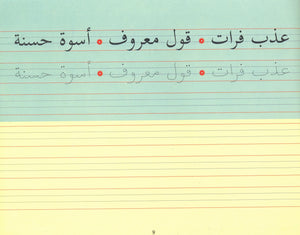 عذب فرات • قول معروف • أسوة حسنة
عذب فرات • قول معروف • أسوة حسنة